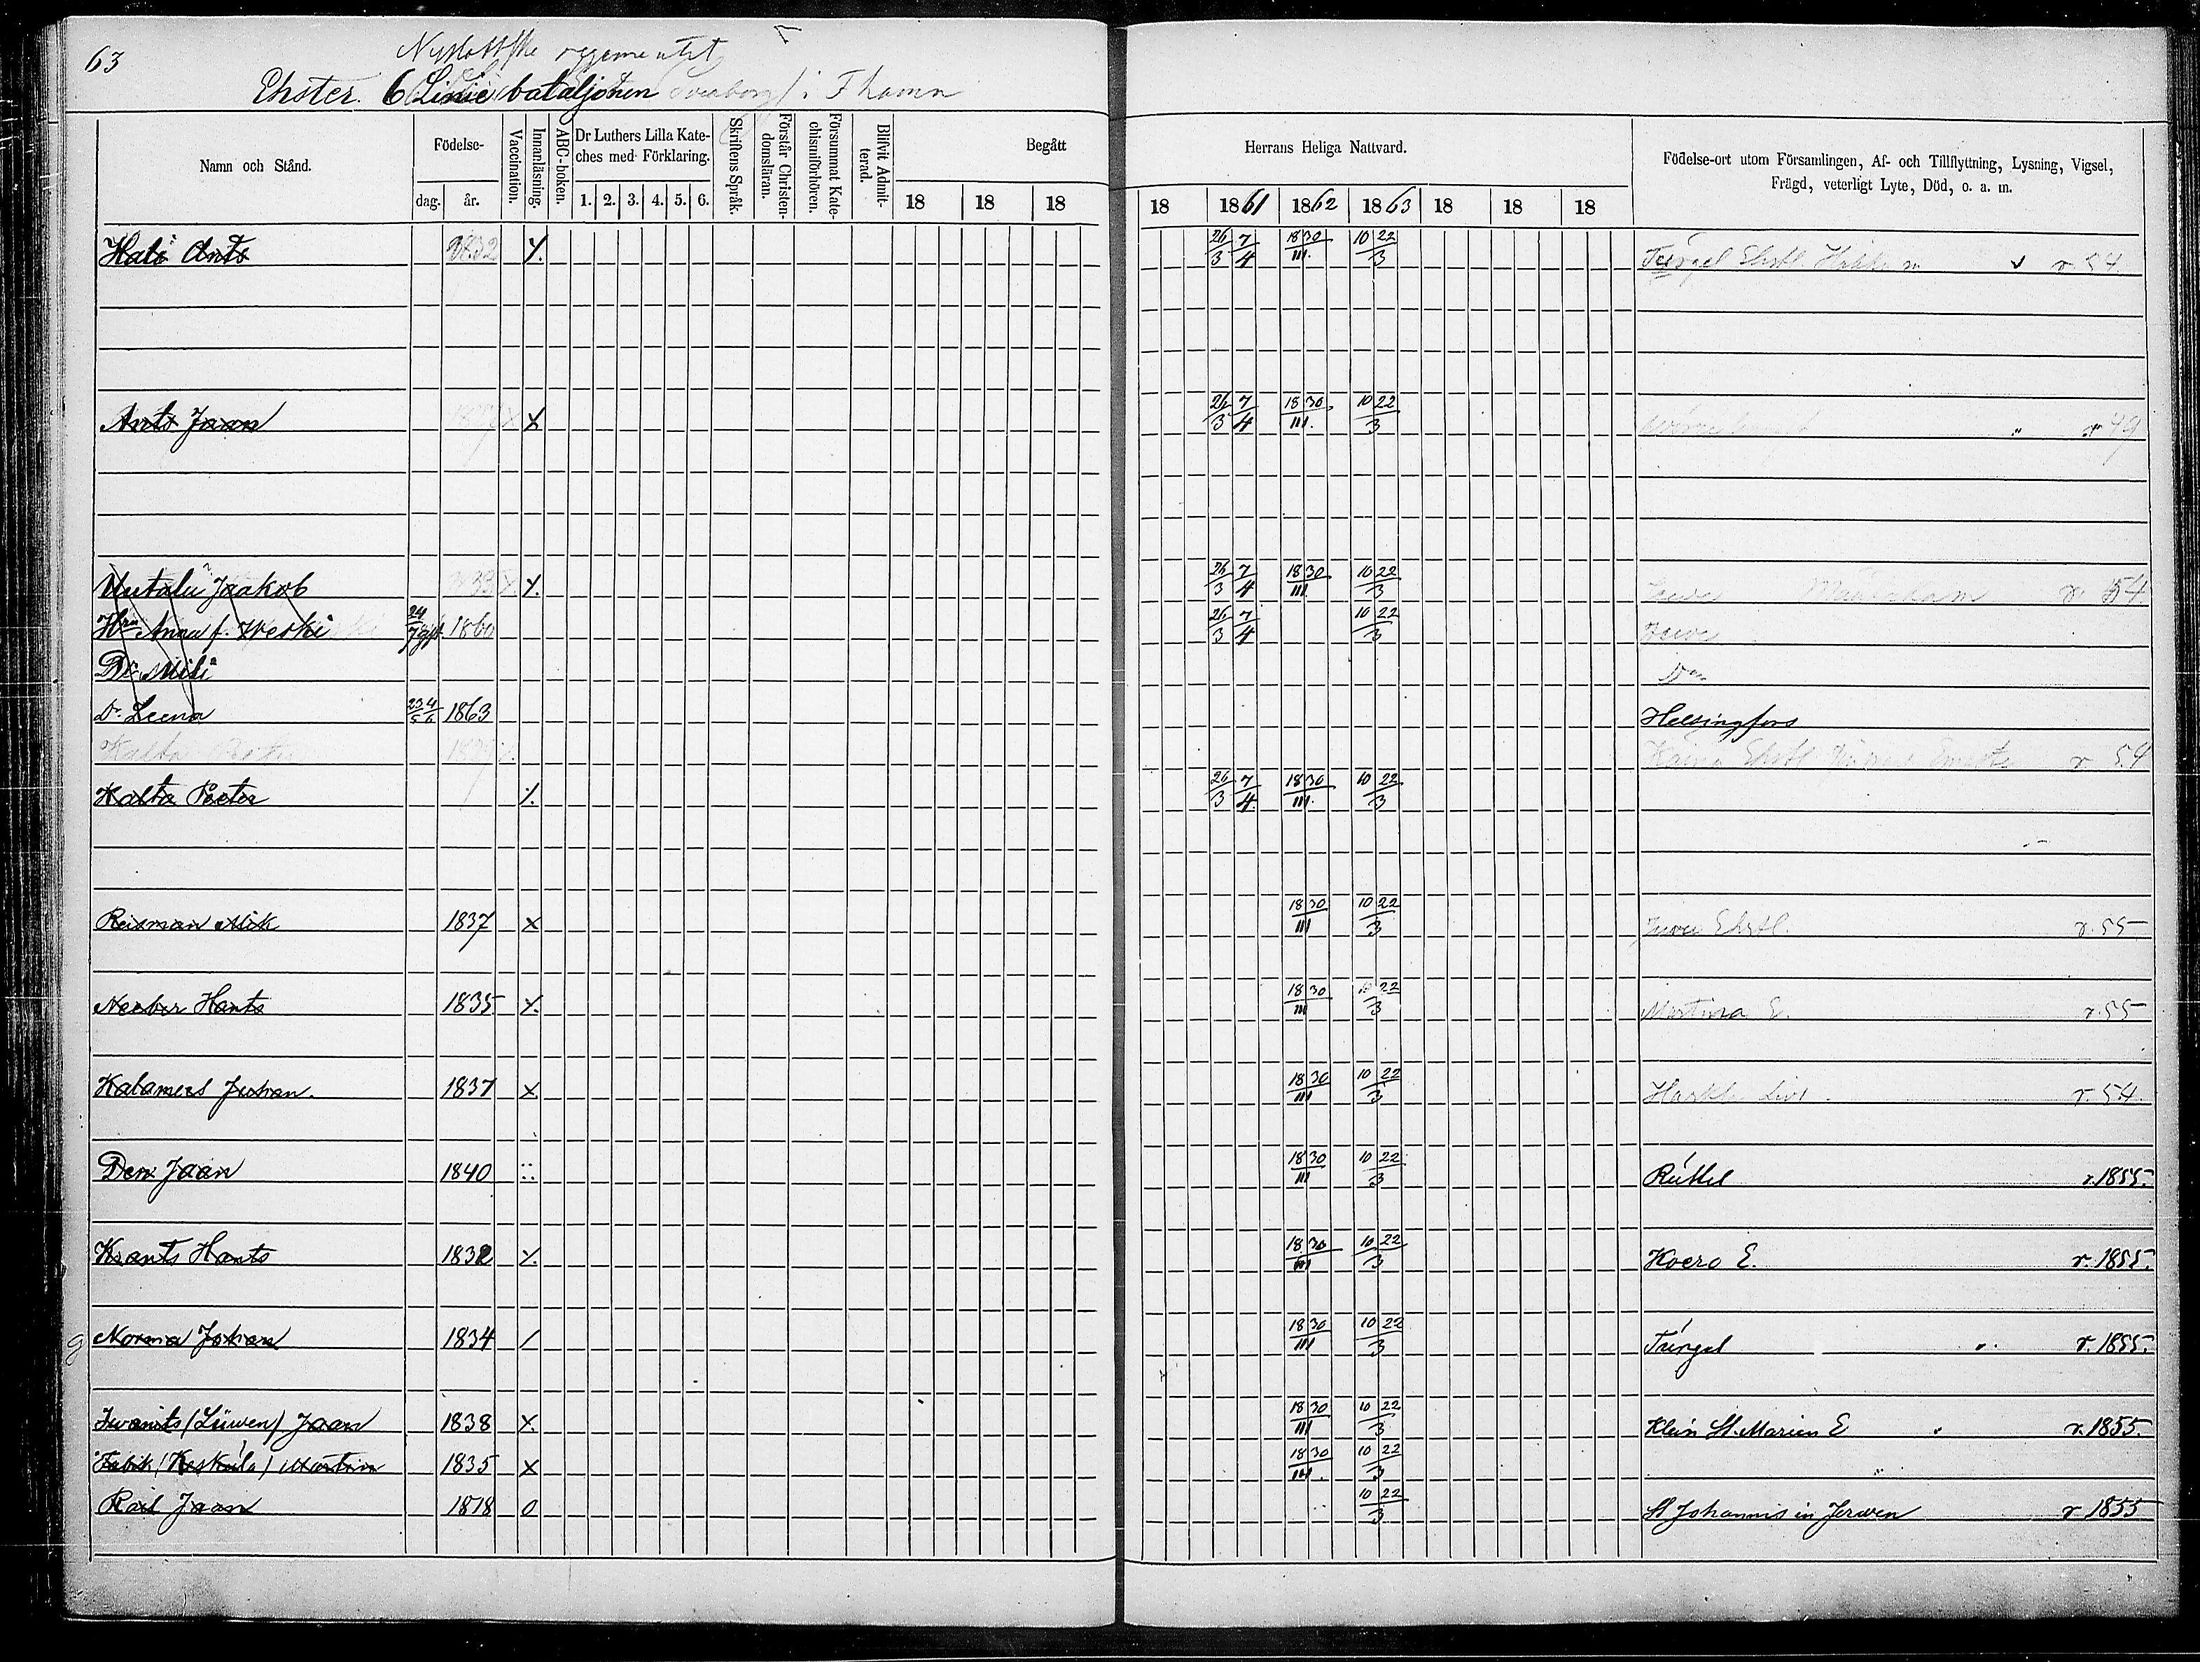 63
Nyslottske regementet
Ehster. 6 Linie bataljonen i Fhamn
Namn och Stånd.
Födelse-
dag. år.
Vaccination.
Innanläsning.
ABC-boken.
Dr Luthers Lilla Kate-
ches med Förklaring.
1. 2. 3. 4. 5. 6.
Skriftens Språk.
Förstår Christen-
domsläran.
Försummat Kate-
chismiförhören.
Blifvit Admit-
terad.
Begått Herrans Heliga Nattvard.
18 18 18 18 1861 1862 1863 18 18 18
Födelse-ort utom Församlingen, Af- och Tillflyttning, Lysning, Vigsel,
Frägd, veterligt Lyte, Död, o. a. m.
Hali Ants 1832 26/3 7/4 18 30/III. 10 22/3 Türgel Ehstl r. 54
Ants Jaan X 26/3 7/4 18 30/III. 10 22/3 49
Uutalu Jaakob 26/3 7/4 18 30/III 10 22/3 r. 54
Hru Anna f. Weski 24/7 1860 26/3 7/4 10 22/3
Dr. Miili Dn
Dr. Leena 23 4/5 6 1863 Helsingfors
Kalta Ehstl r 54
Kalta Peeter 26/3 7/4 18 30/III. 10 22/3
Reisman Mik 1837 X 18 30/III 10 22/3 Ehstl. r. 55
Neeber Hants 1835 X. 18 30/III 10 22/3 Martina E. r. 55
Kalamees Juhan. 1837 X 18 30/III 10 22/3 r. 54
Den Jaan 1840 18 30/III 10 22/3 Rúthel r. 1855.
Krants Hants 1832 X. 18 30/III 10 22/3 Koero E. r. 1855.
Norma Johan 1834 / 18 30/III 10 22/3 Türgel r. 1855.
Iwanits (Lüwen) Jaan 1838 X. 18 30/III 10 22/3 Klein St. Marien E r. 1855.
(Keskula) Martin 1835 X 18 30/III. 10 22/3 "
Rail Jaan 1818 0 10 22/3 St Johannis in Jerwen r 1855